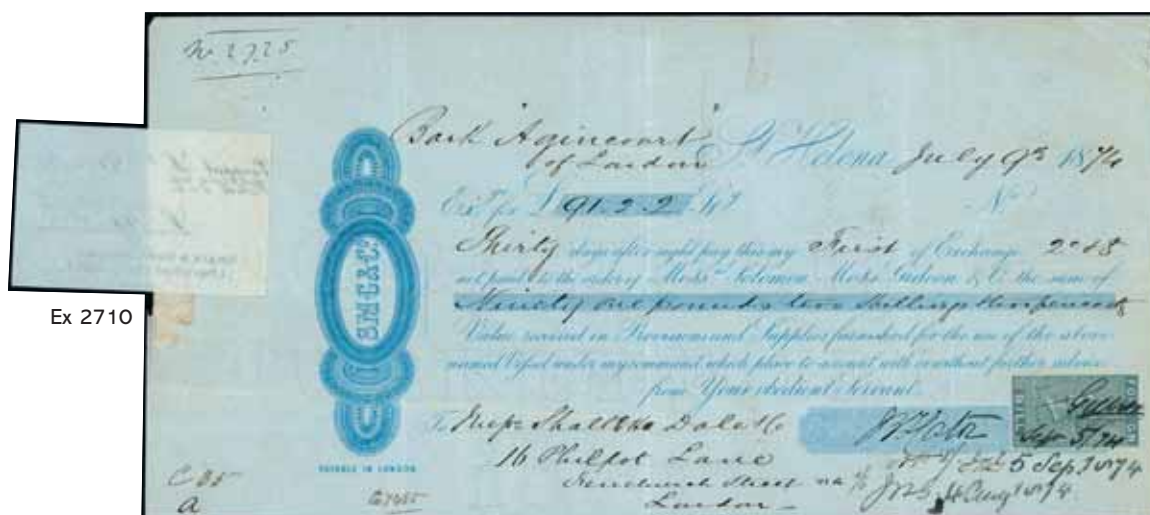 No 2725
Bark "Agincourt"
of London St Helena July 9th 1874
Exc. for £ 91.2.2 Stg. No
Thirty days after sight pay this my First of Exchange 2d & 3
not paid to the order of Messrs. Solomon, Moss, Gideon & Co. the sum of
Ninety one pounds two Shillings
Value received in Provisions and Supplies furnished for the use of the above
named Vessel under my command which place to account with or without further advice
from Your obedient Servant.
S.M.G.&Co.
To Messrs Dale & Co
16 Philpot Lane
Fenchurch Street
London
Sep 5/74
5 Sep 1874
4 Aug 1874
PAYABLE IN LONDON
C 35
a
Ex 2710